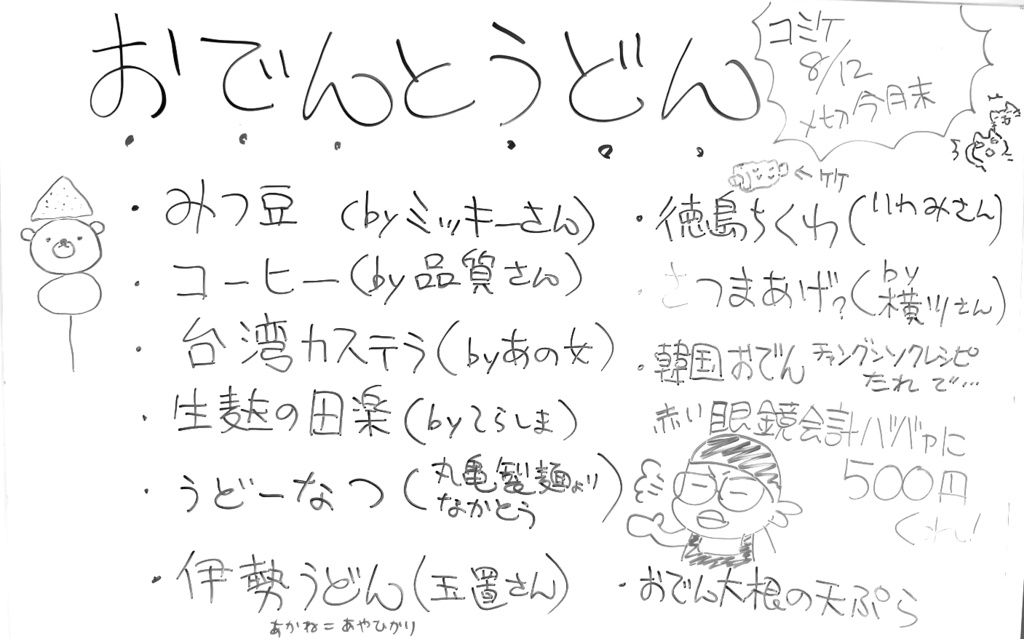 おでんとうどん
コミケ
8/12
〆切今月末
・みつ豆 (byミッキーさん)
・コーヒー(by品質さん)
・台湾カステラ(byあの女)
・生麩の田楽(byてらしま)
・うどーなつ(丸亀製麺より
なかとう)
・伊勢うどん(玉置さん)
あかね=あやひかり
←竹
・徳島ちくわ(いわみさん)
・さつまあげ?(by
横ツさん)
・韓国おでん チャングンソクレシピ
たれで…
赤い眼鏡会計ババァに
500円
くれ!
・おでん大根の天ぷら